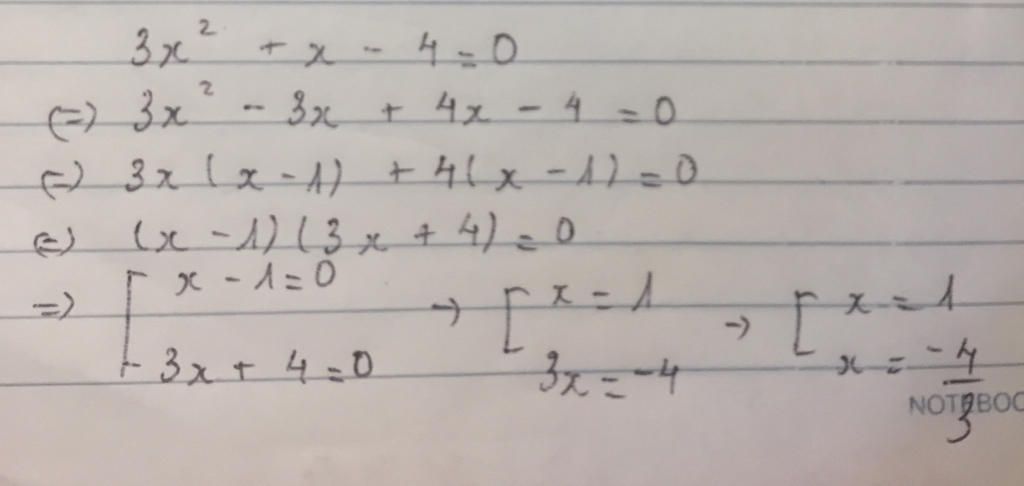 3x² + x - 4 = 0
(=) 3x² - 3x + 4x - 4 = 0
(=) 3x (x - 1) + 4(x - 1) = 0
(=) (x - 1)(3x + 4) = 0
=) [ x - 1 = 0 → [ x = 1 → [ x = 1
3x + 4 = 0 3x = -4 x = -4/3
NOTEBOO